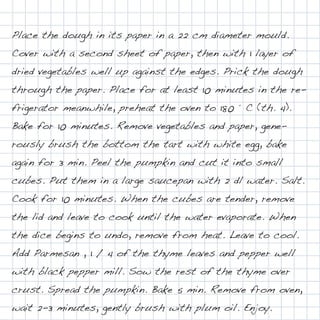 Place the dough in its paper in a 22 cm diameter mould.
Cover with a second sheet of paper, then with 1 layer of
dried vegetables well up against the edges. Prick the dough
through the paper. Place for at least 10 minutes in the re-
frigerator meanwhile, preheat the oven to 180 ° C (th. 4).
Bake for 10 minutes. Remove vegetables and paper, gene-
rously brush the bottom the tart with white egg, bake
again for 3 min. Peel the pumpkin and cut it into small
cubes. Put them in a large saucepan with 2 dl water. Salt.
Cook for 10 minutes. When the cubes are tender, remove
the lid and leave to cook until the water evaporate. When
the dice begins to undo, remove from heat. Leave to cool.
Add Parmesan , 1 / 4 of the thyme leaves and pepper well
with black pepper mill. Sow the rest of the thyme over
crust. Spread the pumpkin. Bake 5 min. Remove from oven,
wait 2-3 minutes, gently brush with plum oil. Enjoy.